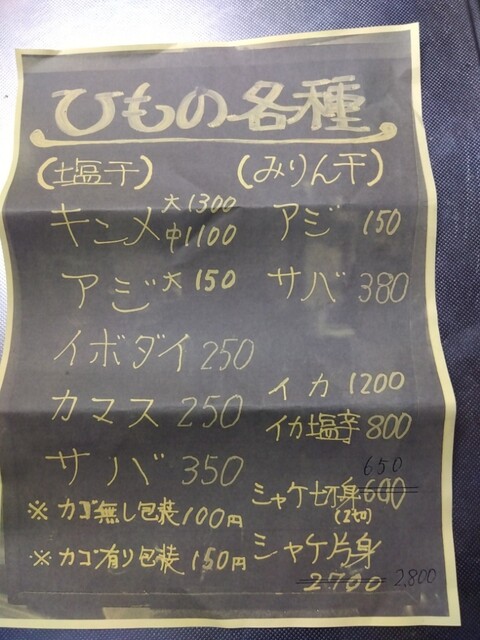 ひもの各種
(塩干)
キンメ 大1300
中1100
アジ 大 150
イボダイ 250
カマス 250
サバ 350
※ カゴ無し包装100円
※ カゴ有り包装150円
(みりん干)
アジ 150
サバ 380
イカ 1200
イカ塩辛 800
650
シャケ切身 600
(2切)
シャケ片身
2700 2,800